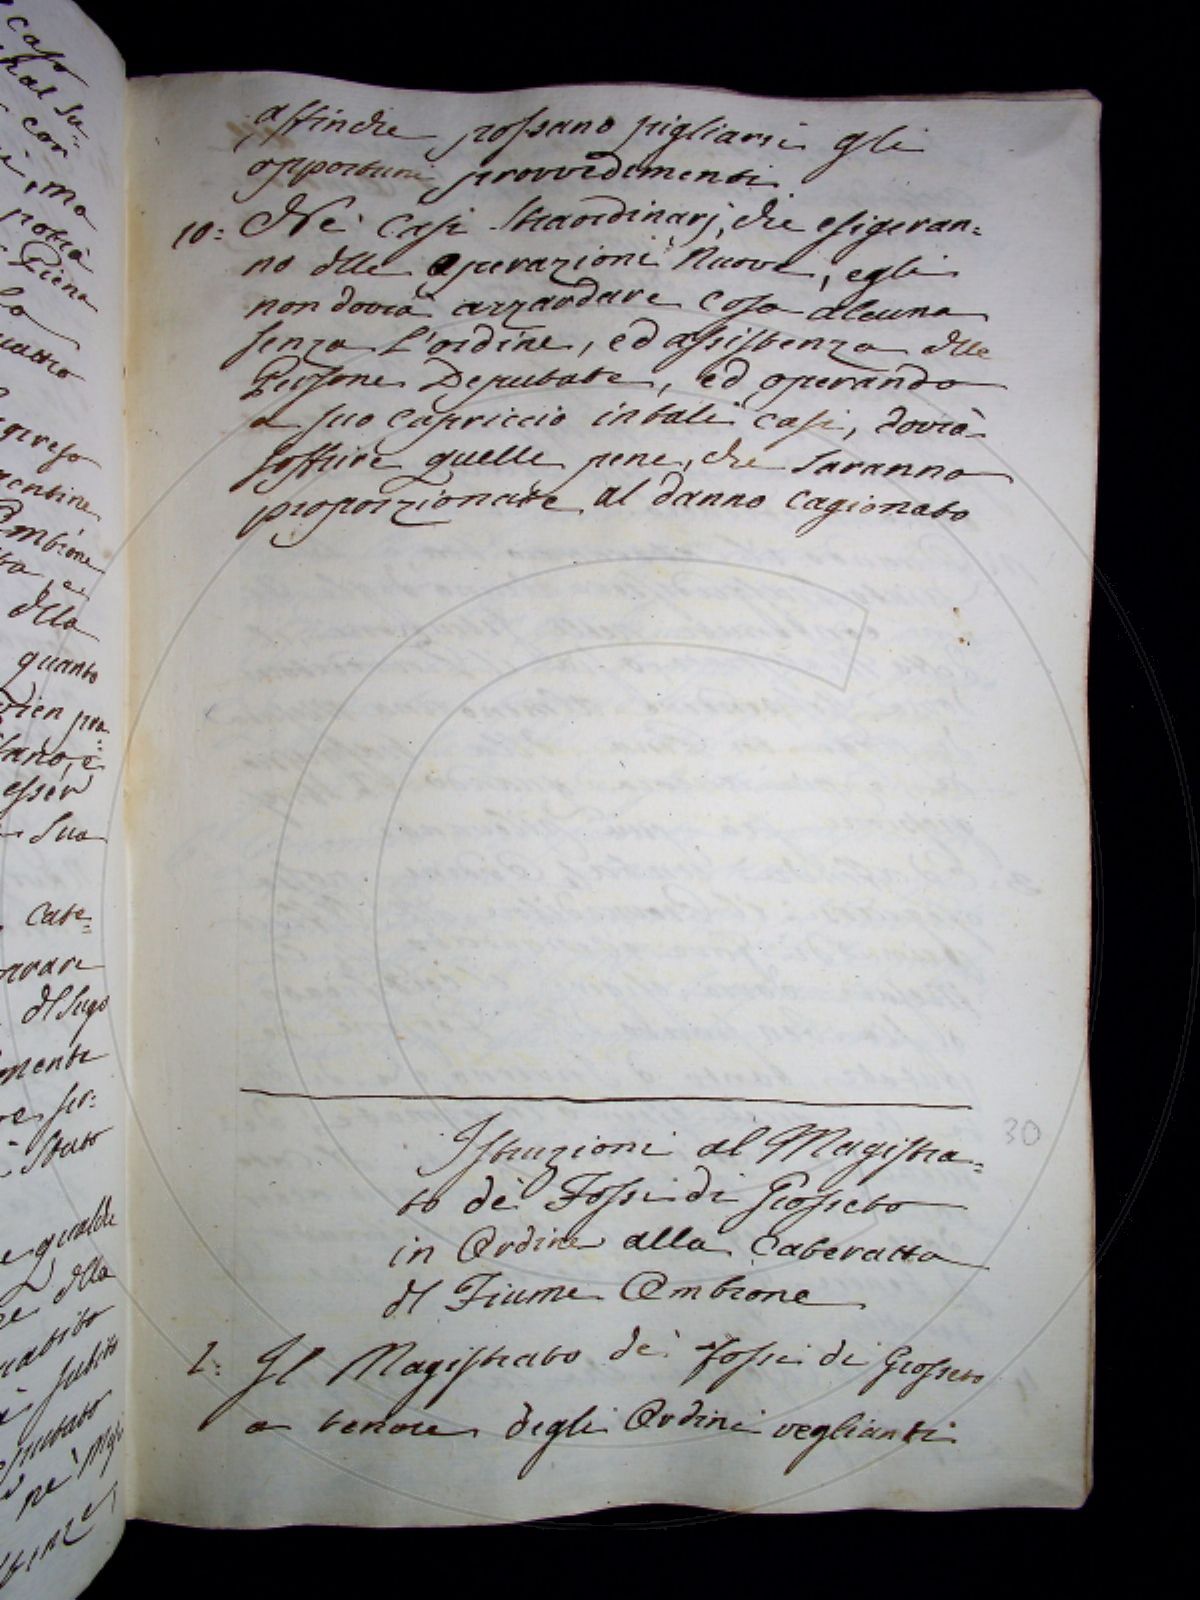 caso
hal su-
cor
, ma
potrà
Piena
la
uattro
Ombrone
dlla
quanto
esser
Sua
Cate=
dl Sugo
mente
Stato
e qualche
dlla
subito
affinche possano pigliarsi gli
opportuni provvedimenti
10: Ne' Casi Straordinarj, che esigeran=
no dlle Operazioni Nuove, egli
non dovrà azzardare cosa alcuna
senza l'ordine, ed assistenza dlle
Persone Deputate, ed operando
a suo capriccio in tali casi, dovrà
soffrire quelle pene, che saranno
proporzionate al danno cagionato
30
Istruzioni al Magistra=
to de' Fossi di Grosseto
in Ordine alla Cateratta
dl Fiume Ombrone
1: Il Magistrato de' Fossi di Grosseto
a tenore degli Ordini veglianti